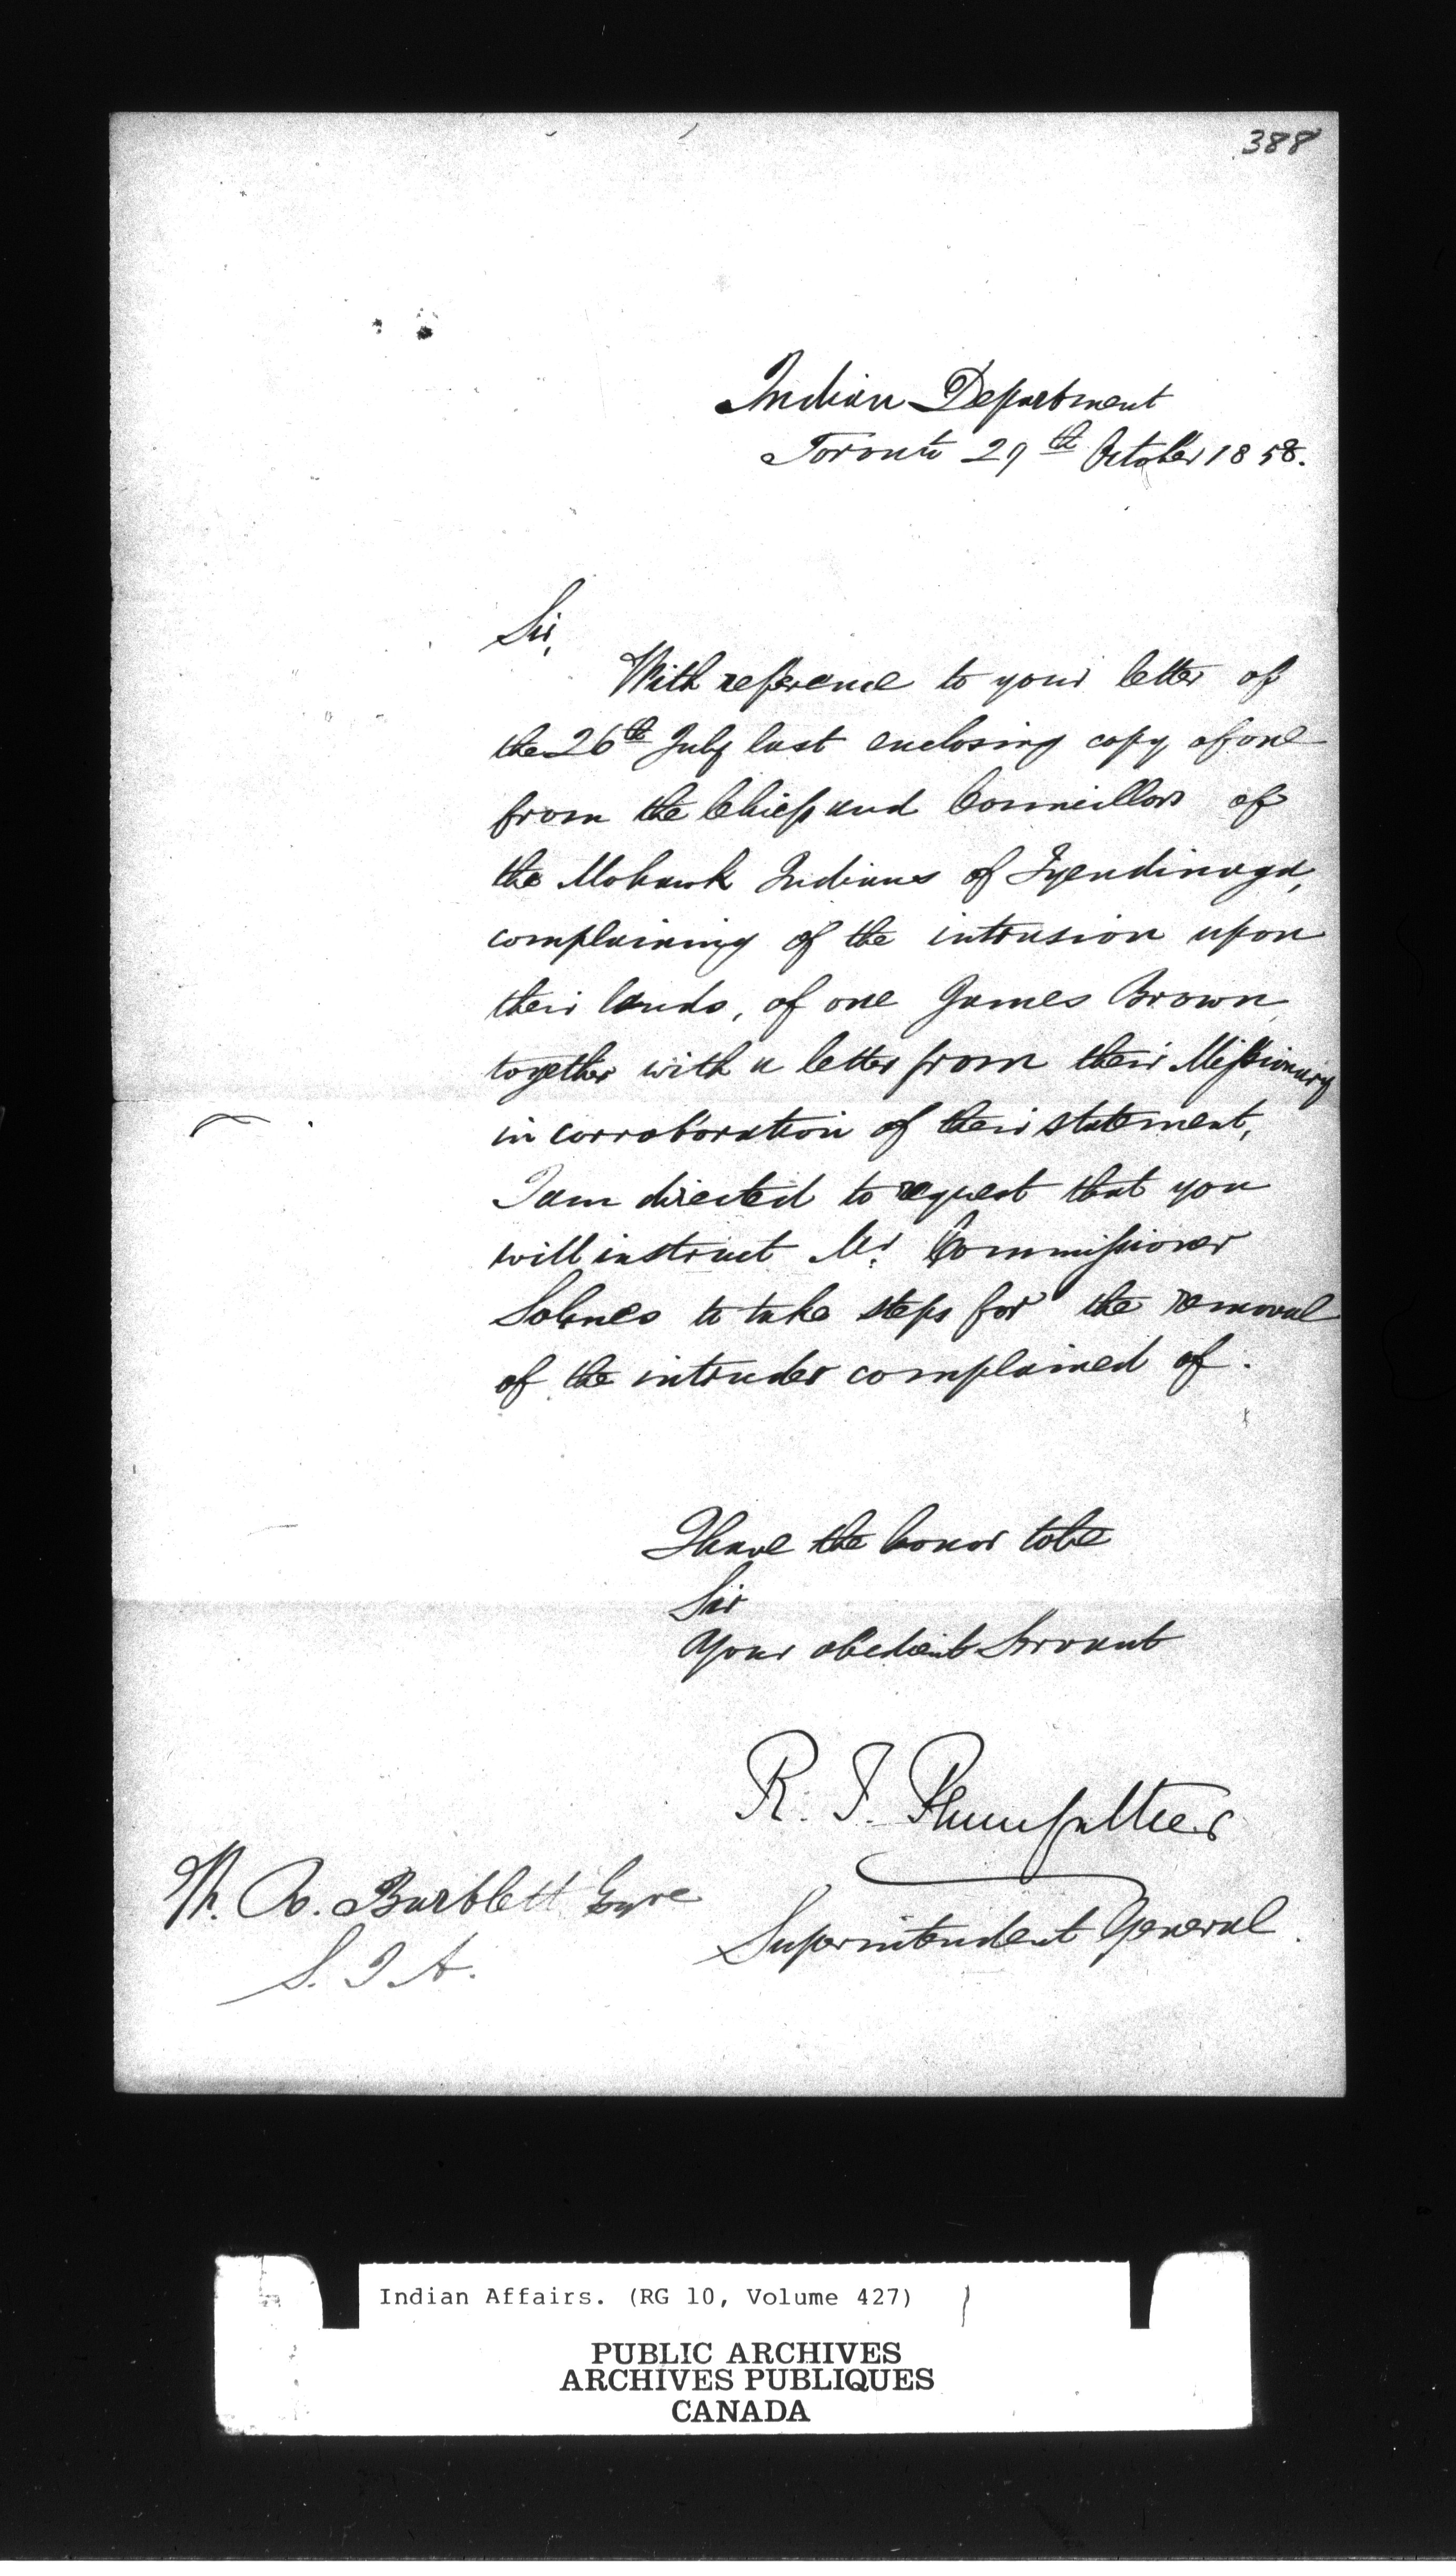 388
Indian Department
Toronto 29th October 1858.
Sir,
With reference to your letter of
the 26th July last enclosing copy of one
from the Chiefs and Councillors of
the Mohawk Indians of Tyendinaga,
complaining of the intrusion upon
their lands, of one James Brown,
together with a letter from their Missionary
in corroboration of their statement,
I am directed to request that you
will instruct Mr. Commissioner
to take steps for the removal
of the intruder complained of.
I have the honor to be
Sir
Your obedient Servant
R. T. Pennefather
Superintendent General.
W. R. Bartlett Esqre
S. I A.
Indian Affairs. (RG 10, Volume 427)
PUBLIC ARCHIVES
ARCHIVES PUBLIQUES
CANADA